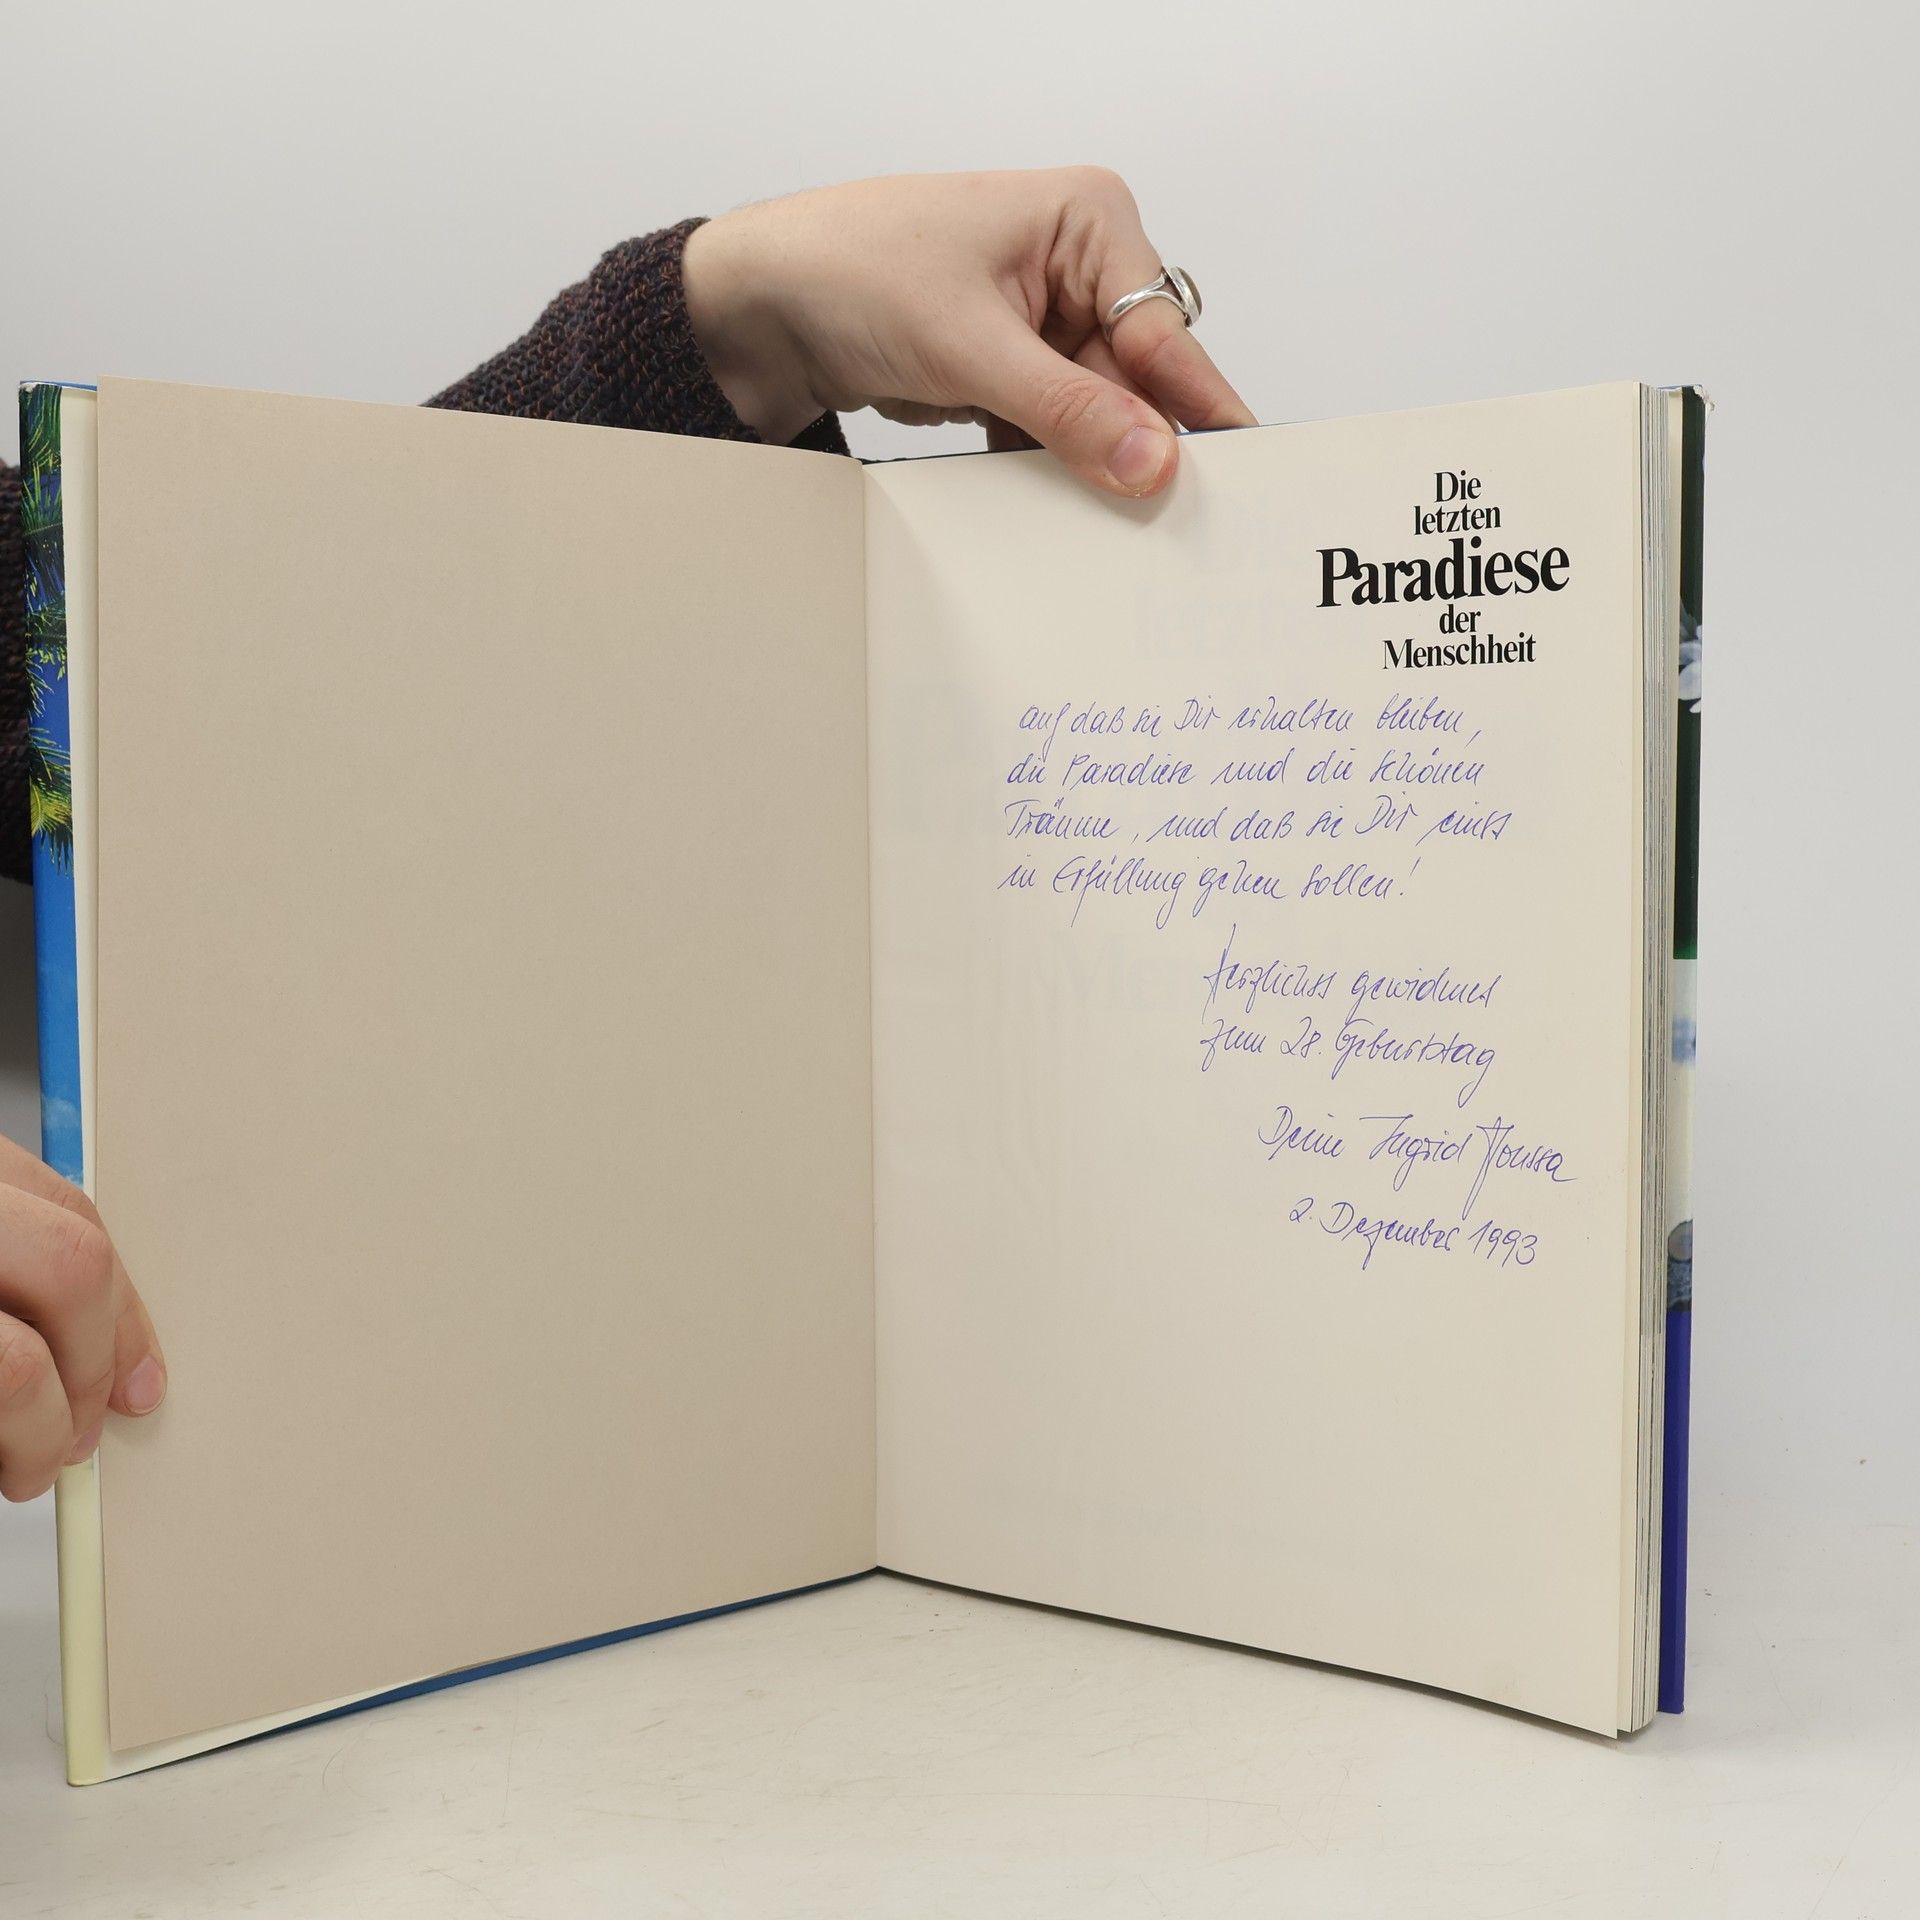 Die
letzten
Paradiese
der
Menschheit
auf daß sie Dir erhalten bleiben,
die Paradiese und die schönen
Träume, und daß sie Dir einst
in Erfüllung gehen sollen!
Herzlichst gewidmet
zum 28. Geburtstag
Deine Ingrid
2. Dezember 1993